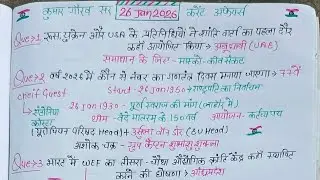 कुमार गौरव सर 26 Jan 2026 करेंट अफेयर्स
Que:>1 रूस, यूक्रेन और USA के प्रतिनिधियों ने शांति वार्ता का पहला दौर
कहाँ आयोजित किया → अबूधाबी (UAE)
समाधान के लिए - मास्को-कीव संकट
Que:>2 वर्ष 2026 में कौन से नंबर का गणतंत्र दिवस मनाया जाएगा → 77वाँ
cheif Guest Start - 26 Jan 1950 → राष्ट्रपति का निर्वाचन
एंटोनियो कोस्टा 26 Jan 1930 - पूर्ण स्वराज की मांग (लाहौर में)
थीम - वंदे मातरम् के 150 वर्ष आयोजन - कर्तव्य पथ
(यूरोपियन परिषद Head) + उर्सुला वॉन डेर (EU Head)
अशोक चक्र - ग्रुप कैप्टन शुभांशु शुक्ला
Que:>3 भारत में WEF का तीसरा-चौथा औद्योगिक क्रांति केंद्र कहाँ स्थापित
करने की घोषणा → आंध्रप्रदेश